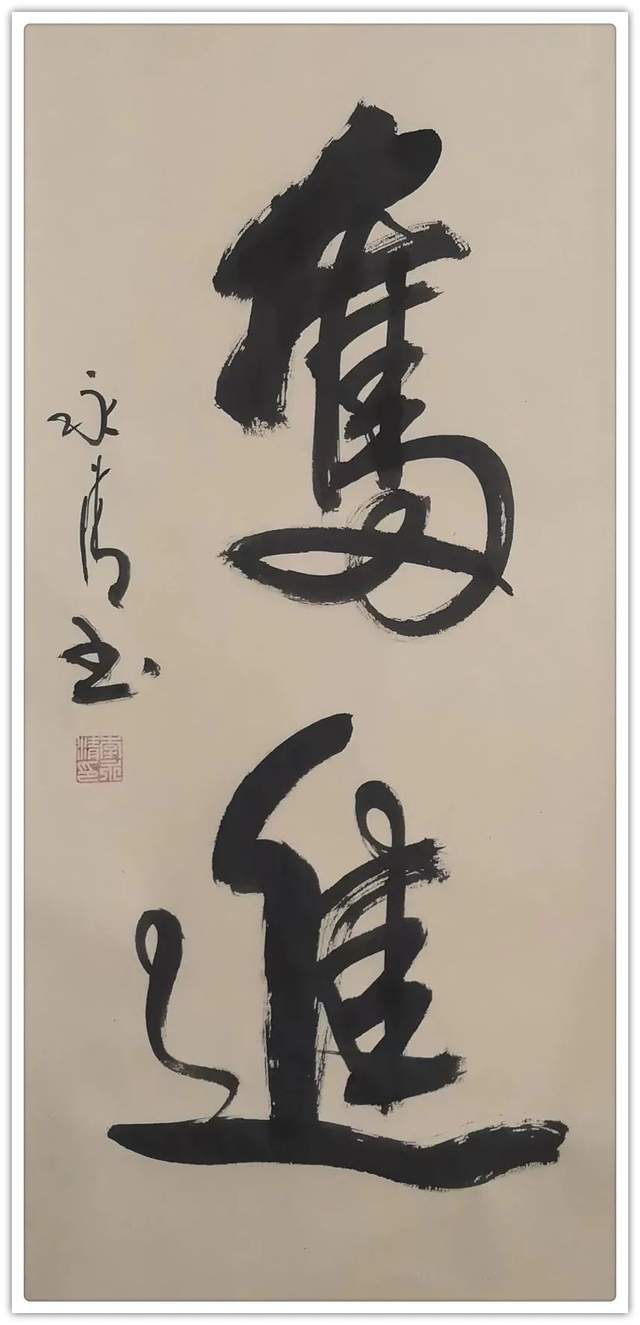 奮進
永清书